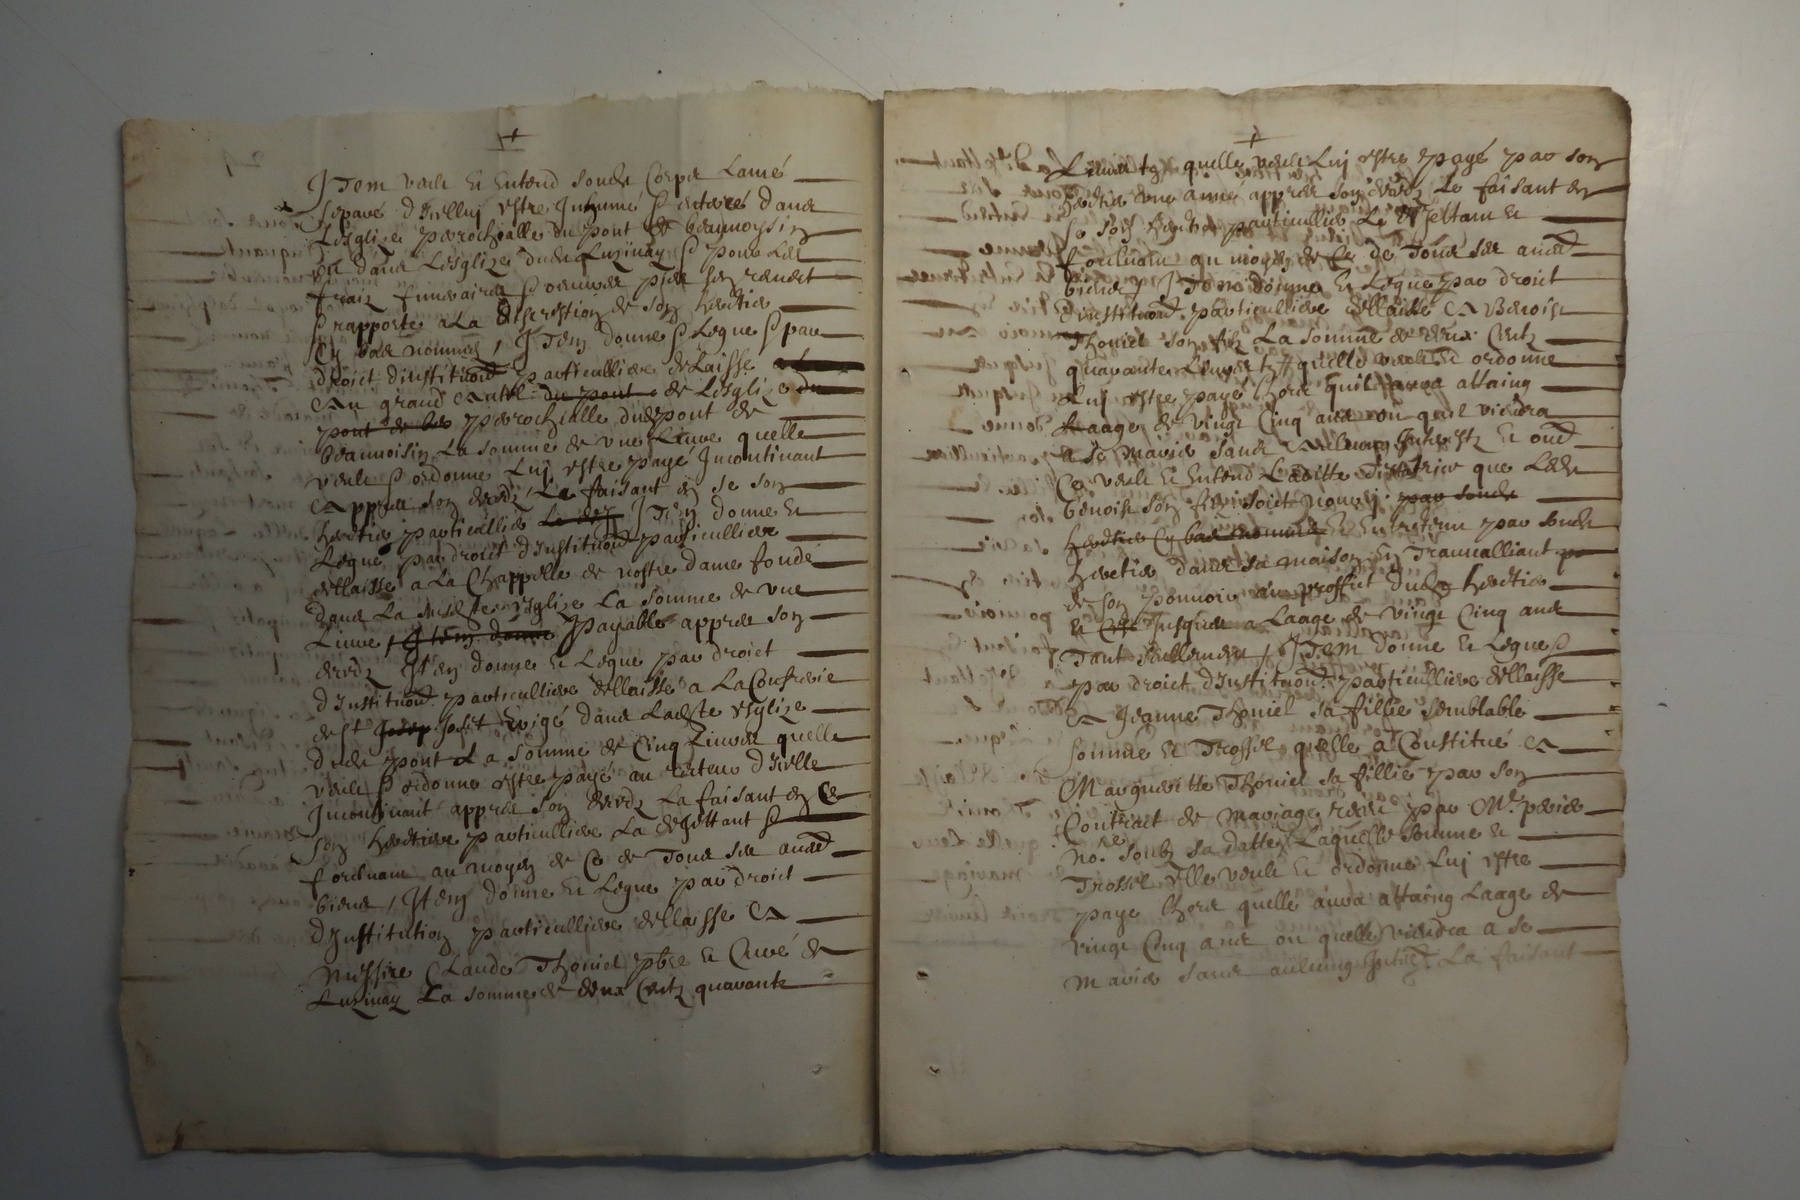 Item veult et entend sondt Corps Lamé
separé d'Icelluy estre Inhumé et enterré dans
Lesglize parrochialle du pont de beauvoysin
ou dans Lesglize dudt Luzinay et pour Les
fraiz funeraires et oeuvres pies sen remect
et rapporte a La discrettion de son heritier
Cy bas nommé, Item donne et Legue et par
droict dinstituon particulliere dellaisse
au grand autel du pont de Lesglize du
pont de bea parrochialle dudt pont de
beauvoisin La somme de une Livre quelle
veult et ordonne Luy estre payé Incontinant
apprés son decedz, Le faisant en ce son
heritier particullier Le dej Item donne et
Legue par droict d'Instituon particulliere
dellaisse a La Chappelle de nostre dame fondé
dans La susdte esglize La somme de une
Livre, Item donne payable apprés son
decedz Item donne et Legue par droict
d'Instituon particulliere dellaisse a La Confrerie
de st Josep Josept Erigé dans Ladte esglize
dudt pont La somme de Cinq Livres quelle
veult et ordonne estre payé au recteur d'Icelle
Incontinant apprés son decedz La faisant en Ce
son heritiere particulliere La dejettant et
forcluant au moyen de Ce de Tous ses audt
biens, Item donne et Legue par droict
d'Institution particulliere dellaisse a
Messire Claude Thoniel pbre et Curé de
Luzinay La somme de deux Centz quarante
Livres tz quelle veult Luy estre payé par son
heritier une année apprés son decedz Le faisant en
Ce son heritier particullier Le dejettant et
forcluant au moyen de Ce de Tous ses audt
biens, Item donne et Legue par droict
d'instituon particulliere dellaisse a Benoist
Thoniel son filz La somme de deux Centz
quarante Livres tz quelle veult et ordonne
Luy estre payé Lhors quil aura attaing
Laage de vingt Cinq ans ou quil viendra
a se marier sans aulcung Interestz et oud
Ce veult et entend Laditte Testatrice que Ledt
benoist son filz soict nourry par sondt
heritier Cy bas nommé et entretenu par sondt
heritier dans sa maison En Travailliant po
de son pouvoir au proffict dudt heritier
et Ce Jusques a Laage de vingt Cinq ans
Tant seullement, Item donne et Legue et
par droict d'Instituon particulliere dellaisse
a Jeanne Thoniel sa fillie semblable
somme et Trossel quelle a Constitué a
Margueritte Thoniel sa fillie par son
Contract de mariage receu par Me perier
Nore soubz sa datte, Laquelle somme et
Trossel elle veult et ordonne Luy estre
payé Lhors quelle aura attaing Laage de
vingt Cinq ans ou quelle viendra a se
marier sans aulcung Interestz La faisant